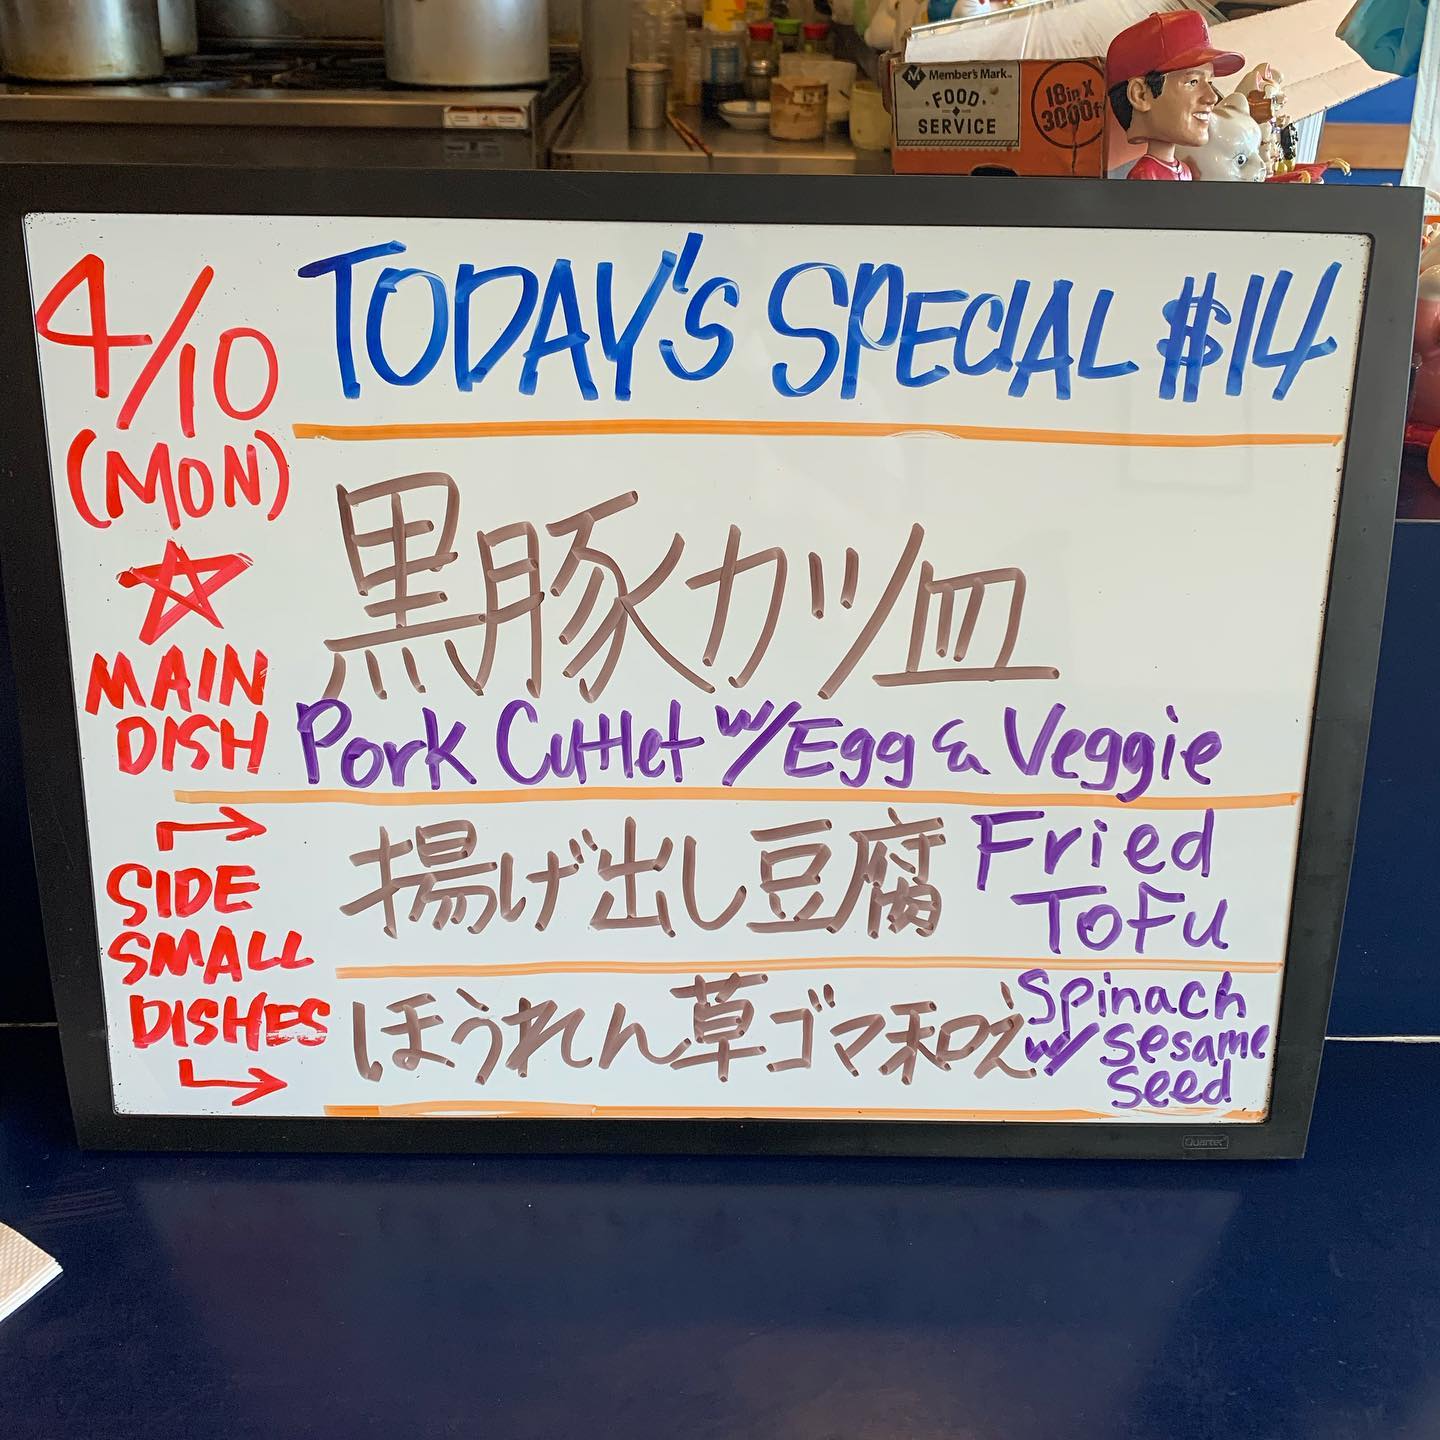 Member's Mark™
FOOD
SERVICE
18in X
3000f
4/10
(MON)
TODAY'S SPECIAL $14
MAIN
DISH
黒豚カツ皿
Pork Cuttlet w/Egg & Veggie
SIDE
SMALL
DISHES
揚げ出し豆腐
Fried
Tofu
ほうれん草ゴマ和え
Spinach
w/ Sesame
Seed
Quartet